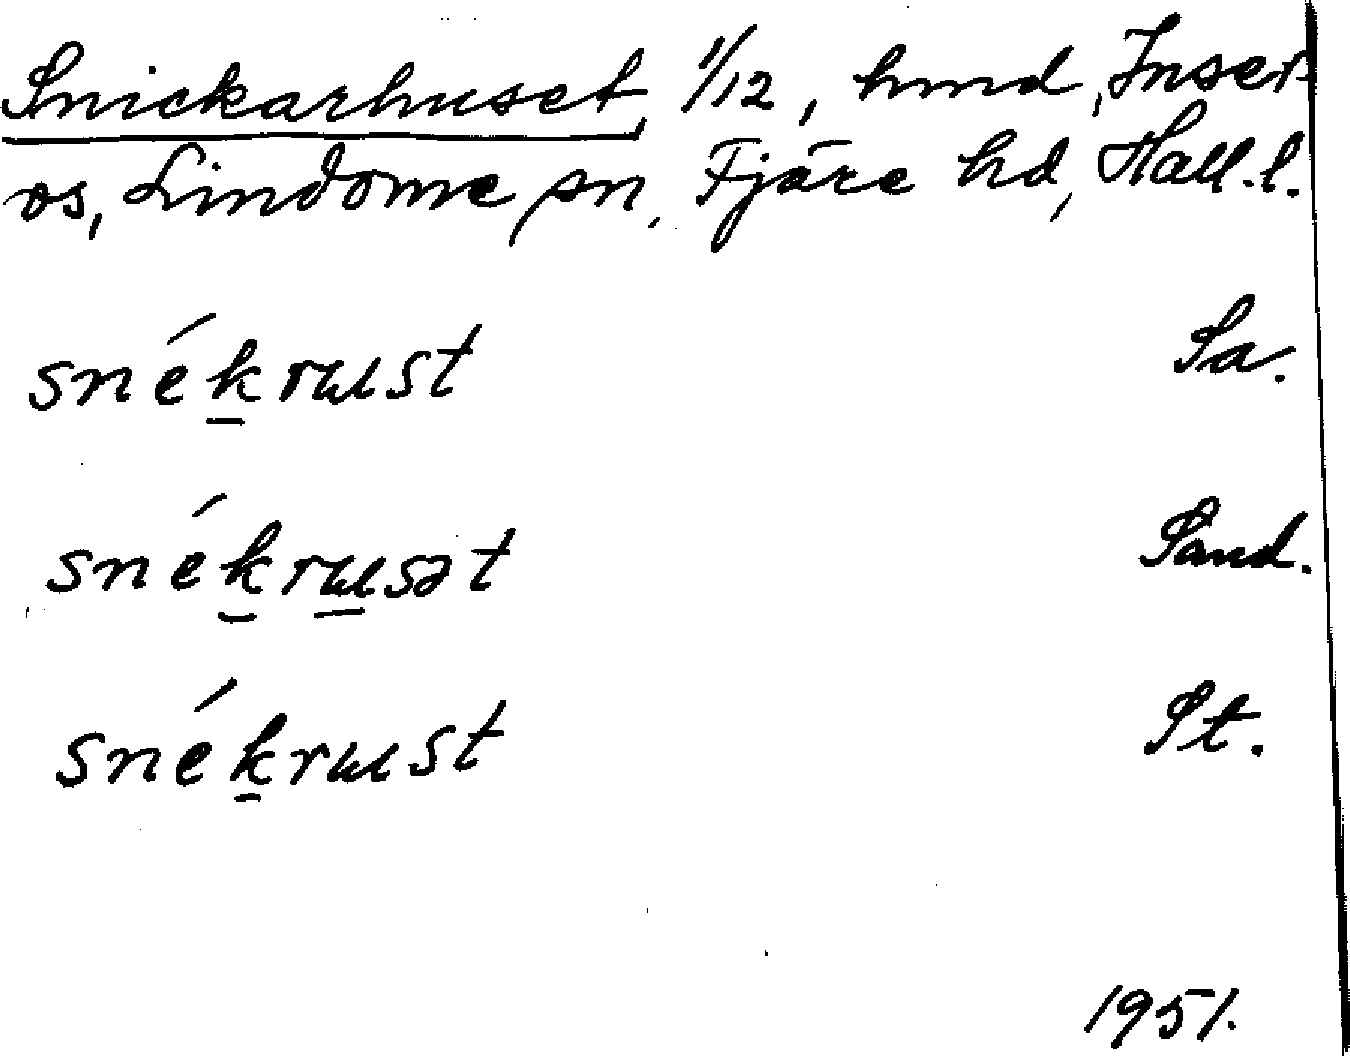 Snickarhuset, 1/12, hmd, Inser-
os, Lindome sn, Fjäre hd, Hall. l.
snékrɯst Sa.
snékrɯsət Sand.
snékrɯst St.
1951.